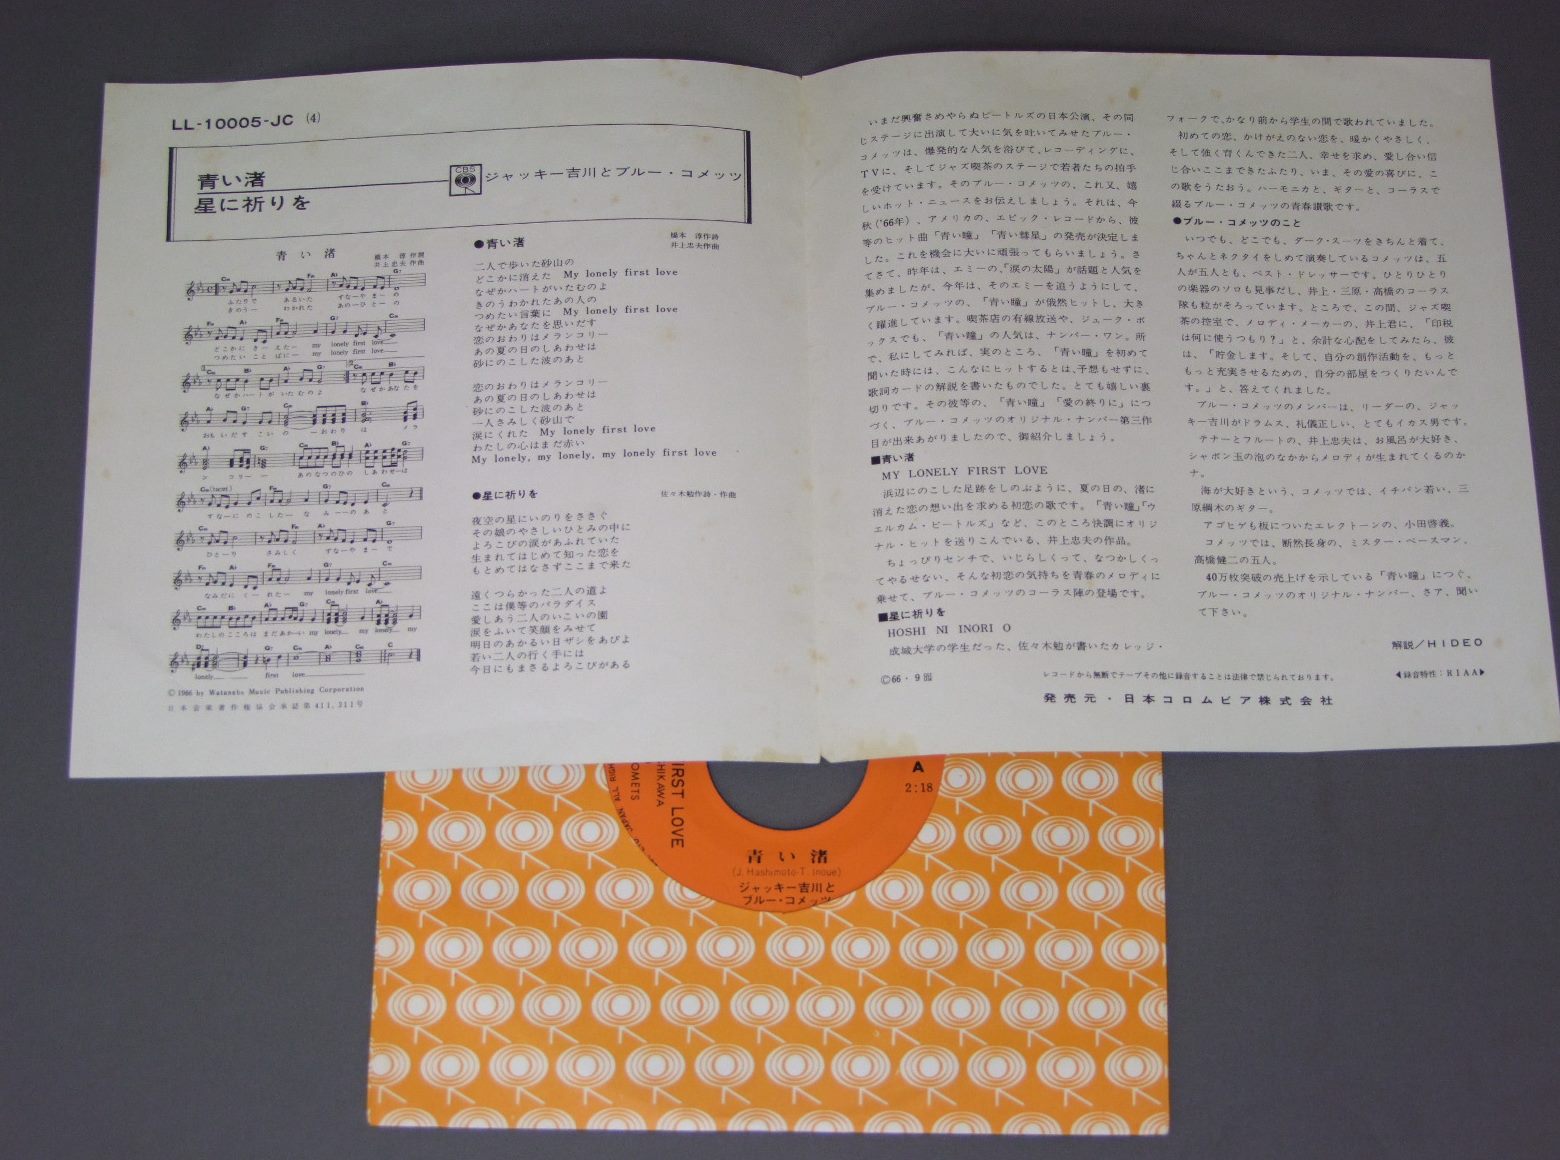 LL-10005-JC (4)
青い渚
星に祈りを
CBS
ジャッキー吉川とブルー・コメッツ
青い渚
橋本 淳 作詞
井上忠夫 作曲
ふたりで あるいた すなーやまーの
きのうー わかれた あのーひとーの
どこかに きーえたー my lonely first love
つめたい ことばにー my lonely first love
なぜかハートが いたむのよ なぜかあなたを
おもいだす こいの ーおわり は メラ
ン コリーー あのなつのひの しあわせーは
すなーに のこしたー なみーーのあと
ひとーり さみしく すなーやまーで
なみだに くーれたー my lonely first love
わたしのこころは まだあかーい my lonely my lonely my
lonely first love
©1966 by Watanabe Music Publishing Corporation
日本音楽著作権協会承認第411,211号
●青い渚
橋本 淳作詩
井上忠夫作曲
二人で歩いた砂山の
どこかに消えた My lonely first love
なぜかハートがいたむのよ
きのうわかれたあの人の
つめたい言葉に My lonely first love
なぜかあなたを思いだす
恋のおわりはメランコリー
あの夏の日のしあわせは
砂にのこした波のあと
恋のおわりはメランコリー
あの夏の日のしあわせは
砂にのこした波のあと
一人さみしく砂山で
涙にくれた My lonely first love
わたしの心はまだ赤い
My lonely, my lonely, my lonely first love
●星に祈りを
佐々木勉作詩・作曲
夜空の星にいのりをささぐ
その娘のやさしいひとみの中に
よろこびの涙があふれていた
生まれてはじめて知った恋を
もとめてはなさずここまで来た
遠くつらかった二人の道よ
ここは僕等のパラダイス
愛しあう二人のいこいの園
涙をふいて笑顔をみせて
明日のあかるい日ザシをあびよ
若い二人の行く手には
今日にもまさるよろこびがある
いまだ興奮さめやらぬビートルズの日本公演、その同
じステージに出演して大いに気を吐いてみせたブルー・
コメッツは、爆発的な人気を浴びて、レコーディングに、
TVに、そしてジャズ喫茶のステージで若者たちの拍手
を受けています。そのブルー・コメッツの、これ又、嬉
しいホット・ニュースをお伝えしましょう。それは、今
秋('66年)、アメリカの、エピック・レコードから、彼
等のヒット曲「青い瞳」「青い彗星」の発売が決定しま
した。これを機会に大いに頑張ってもらいましょう。さ
てさて、昨年は、エミーの、「涙の太陽」が話題と人気を
集めましたが、今年は、そのエミーを追うようにして、
ブルー・コメッツの、「青い瞳」が俄然ヒットし、大き
く躍進しています。喫茶店の有線放送や、ジューク・ボ
ックスでも、「青い瞳」の人気は、ナンバー・ワン。所
で、私にしてみれば、実のところ、「青い瞳」を初めて
聞いた時には、こんなにヒットするとは、予想もせずに、
歌詞カードの解説を書いたものでした。とても嬉しい裏
切りです。その彼等の、「青い瞳」「愛の終りに」につ
づく、ブルー・コメッツのオリジナル・ナンバー第三作
目が出来あがりましたので、御紹介しましょう。
■青い渚
MY LONELY FIRST LOVE
浜辺にのこした足跡をしのぶように、夏の日の、渚に
消えた恋の想い出を求める初恋の歌です。「青い瞳」「ウ
エルカム・ビートルズ」など、このところ快調にオリジ
ナル・ヒットを送りこんでいる、井上忠夫の作品。
ちょっぴりセンチで、いじらしくって、なつかしくっ
てやるせない、そんな初恋の気持ちを青春のメロディに
乗せて、ブルー・コメッツのコーラス陣の登場です。
■星に祈りを
HOSHI NI INORI O
成城大学の学生だった、佐々木勉が書いたカレッジ・
フォークで、かなり前から学生の間で歌われていました。
初めての恋、かけがえのない恋を、暖かくやさしく、
そして強く育くんできた二人、幸せを求め、愛し合い信
じ合いここまできたふたり、いま、その愛の喜びに、こ
の歌をうたおう。ハーモニカと、ギターと、コーラスで
綴るブルー・コメッツの青春讃歌です。
●ブルー・コメッツのこと
いつでも、どこでも、ダーク・スーツをきちんと着て、
ちゃんとネクタイをしめて演奏しているコメッツは、五
人が五人とも、ベスト・ドレッサーです。ひとりひとり
の楽器のソロも見事だし、井上・三原・高橋のコーラス
隊も粒がそろっています。ところで、この間、ジャズ喫
茶の控室で、メロディ・メーカーの、井上君に、「印税
は何に使うつもり？」と、余計な心配をしてみたら、彼
は、「貯金します。そして、自分の創作活動を、もっと
もっと充実させるための、自分の部屋をつくりたいんで
す。」と、答えてくれました。
ブルー・コメッツのメンバーは、リーダーの、ジャッ
キー吉川がドラムス、礼儀正しい、とてもイカス男です。
テナーとフルートの、井上忠夫は、お風呂が大好き、
シャボン玉の泡のなかからメロディが生まれてくるのか
ナ。
海が大好きという、コメッツでは、イチバン若い、三
原綱木のギター。
アゴヒゲも板についたエレクトーンの、小田啓義。
コメッツでは、断然長身の、ミスター・ベースマン、
高橋健二の五人。
40万枚突破の売上げを示している「青い瞳」につぐ、
ブルー・コメッツのオリジナル・ナンバー、さア、聞い
て下さい。
解説/HIDEO
©66・9
レコードから無断でテープその他に録音することは法律で禁じられております。
◀録音特性：RIAA▶
発売元・日本コロムビア株式会社
FIRST LOVE
SHIKAWA
OMETS
JAPAN ALL RIGH
A
2:18
青い渚
(J. Hashimoto-T. Inoue)
ジャッキー吉川と
ブルー・コメッツ